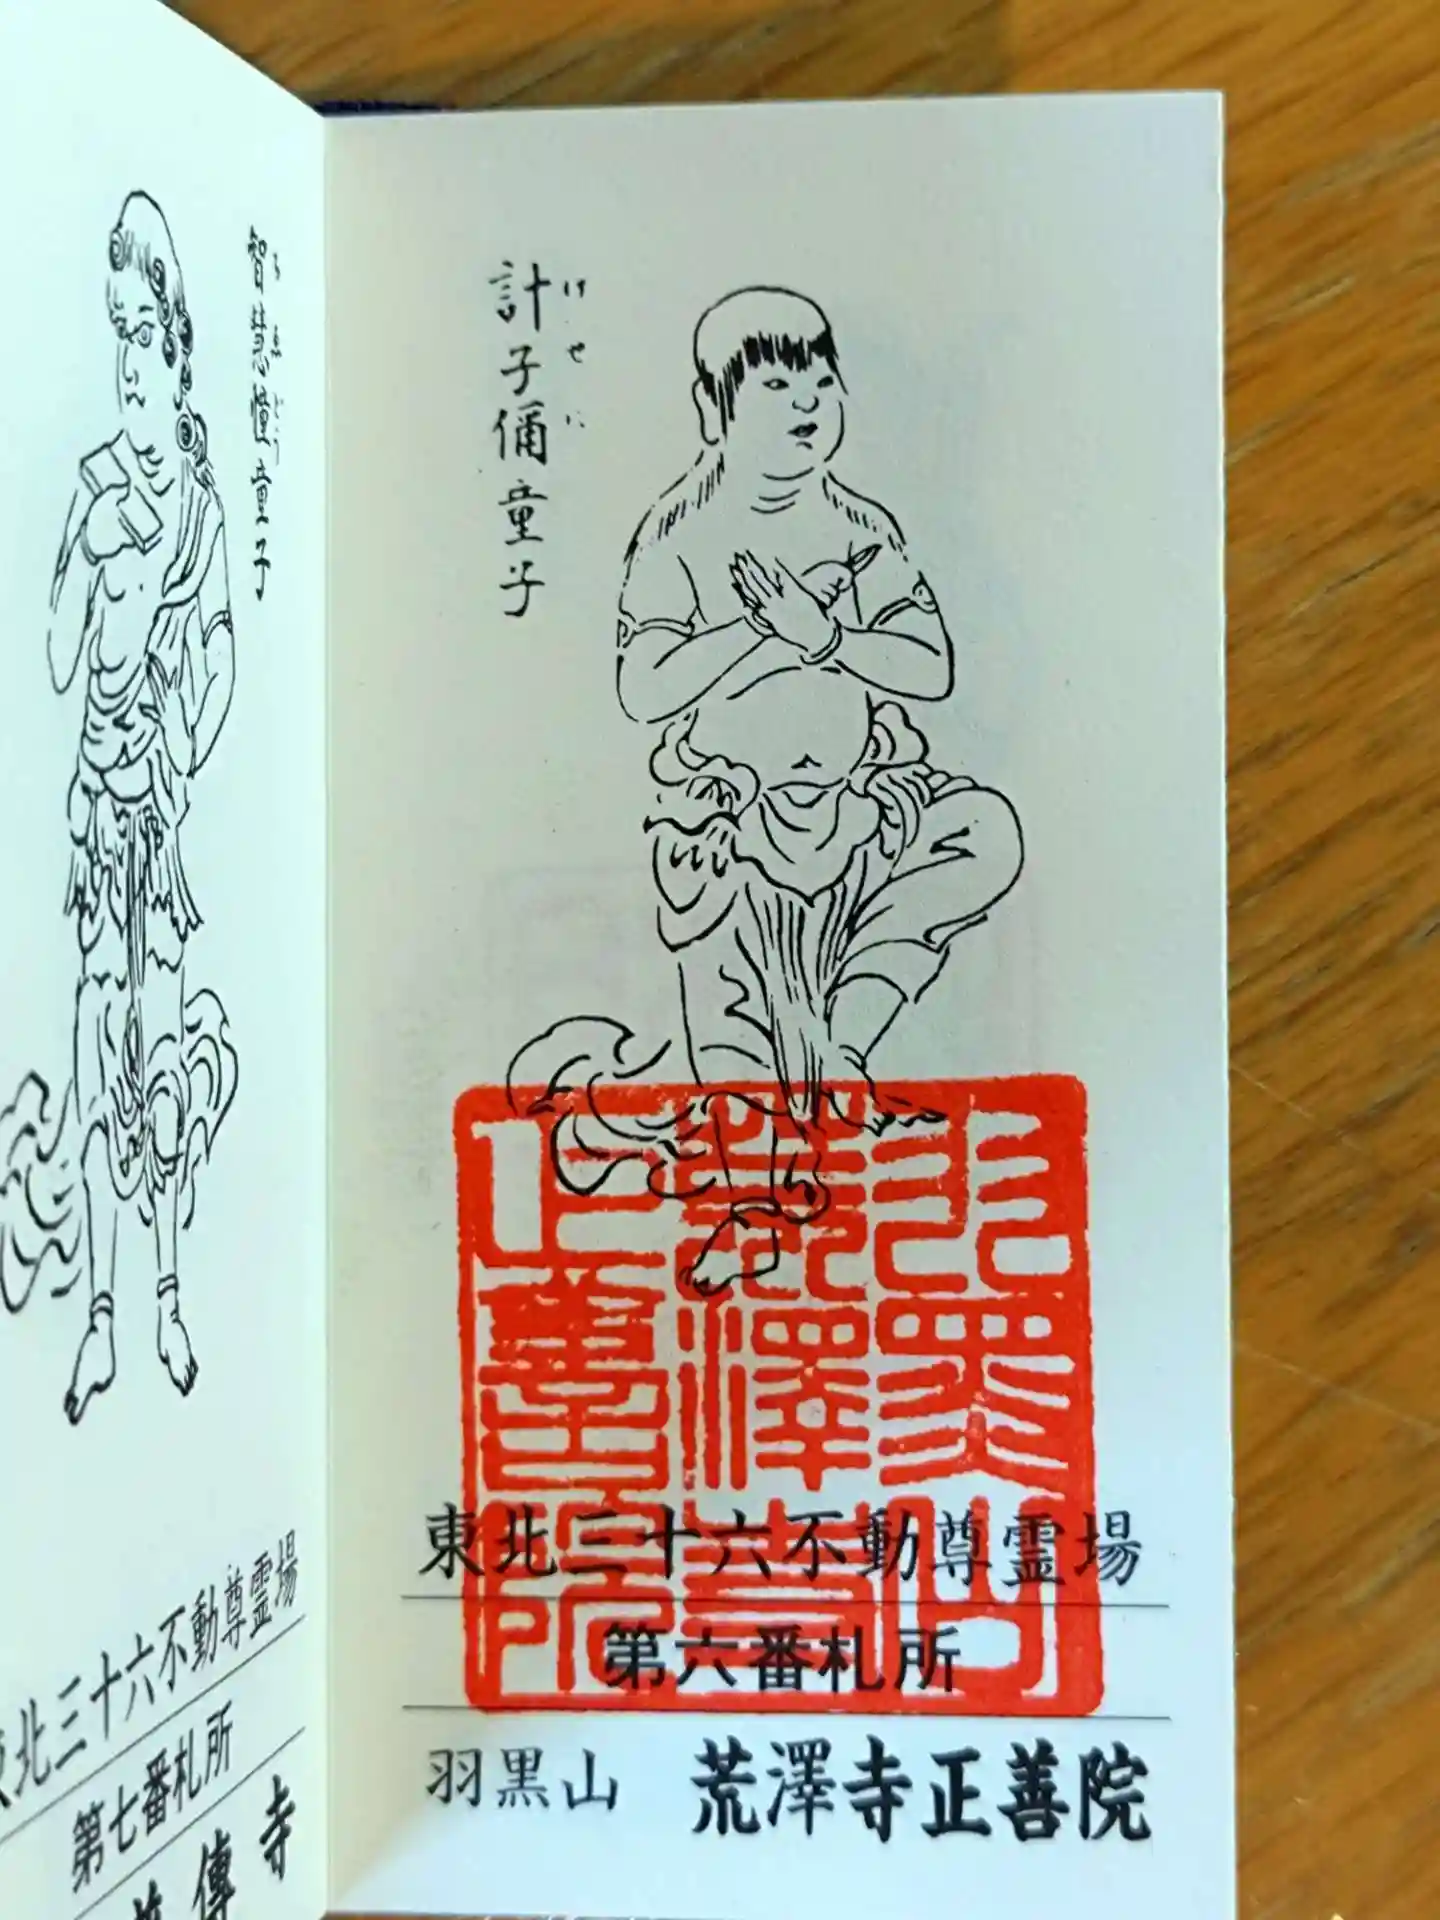 計子儞童子
けせに
東北三十六不動尊霊場
第六番札所
羽黒山 荒澤寺正善院
羽黒山
荒澤寺
正善院
智慧憧童子
北三十六不動尊霊場
第七番札所
傳寺